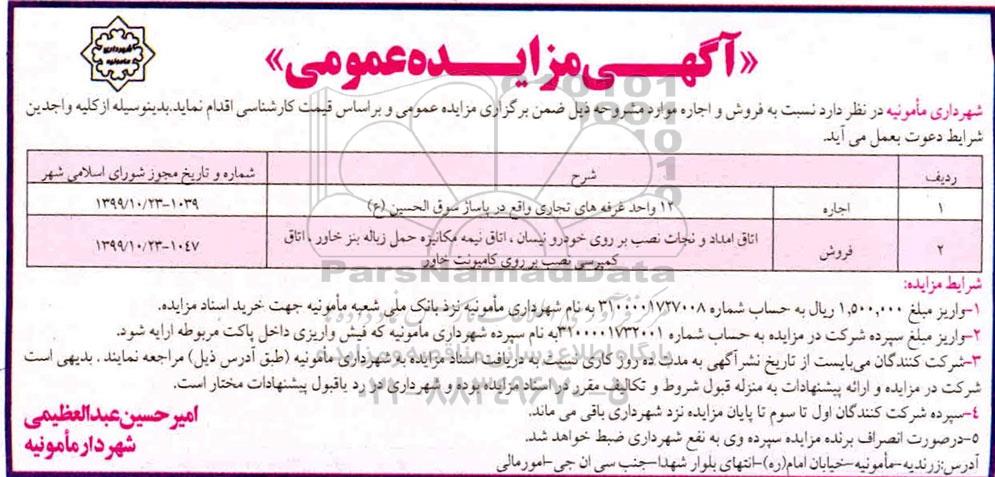 شهرداری
مأمونیه
«آگهی مزایده عمومی»
شهرداری مأمونیه در نظر دارد نسبت به فروش و اجاره موارد مشروحه ذیل ضمن برگزاری مزایده عمومی و براساس قیمت کارشناسی اقدام نماید.بدینوسیله ازکلیه واجدین
شرایط دعوت بعمل می آید.
ردیف شرح شماره و تاریخ مجوز شورای اسلامی شهر
۱ اجاره ۱۲ واحد غرفه های تجاری واقع در پاساژ سوق الحسین (ع) ۱۰۳۹-۱۳۹۹/۱۰/۲۳
۲ فروش اتاق امداد و نجات نصب بر روی خودرو نیسان ، اتاق نیمه مکانیزه حمل زباله بنز خاور ، اتاق
کمپرسی نصب بر روی کامیونت خاور ۱۰۴۷-۱۳۹۹/۱۰/۲۳
ParsNamadData
شرایط مزایده:
۱-واریز مبلغ ۱,۵۰۰,۰۰۰ ریال به حساب شماره ۳۱۰۰۰۰۱۷۲۷۰۰۸ به نام شهرداری مأمونیه نزد بانک ملی شعبه مأمونیه جهت خرید اسناد مزایده.
۲-واریز مبلغ سپرده شرکت در مزایده به حساب شماره ۳۲۰۰۰۰۱۷۳۲۰۰۱به نام سپرده شهرداری مأمونیه که فیش واریزی داخل پاکت مربوطه ارایه شود.
۳-شرکت کنندگان می‌بایست از تاریخ نشرآگهی به مدت ده روز کاری نسبت به دریافت اسناد مزایده به شهرداری مأمونیه (طبق آدرس ذیل) مراجعه نمایند . بدیهی است
شرکت در مزایده و ارائه پیشنهادات به منزله قبول شروط و تکالیف مقرر در اسناد مزایده بوده و شهرداری در رد یاقبول پیشنهادات مختار است.
۴-سپرده شرکت کنندگان اول تا سوم تا پایان مزایده نزد شهرداری باقی می ماند.
۵-درصورت انصراف برنده مزایده سپرده وی به نفع شهرداری ضبط خواهد شد.
آدرس:زرندیه-مأمونیه-خیابان امام(ره)-انتهای بلوار شهدا-جنب سی ان جی-امورمالی
امیرحسین عبدالعظیمی
شهردار مأمونیه